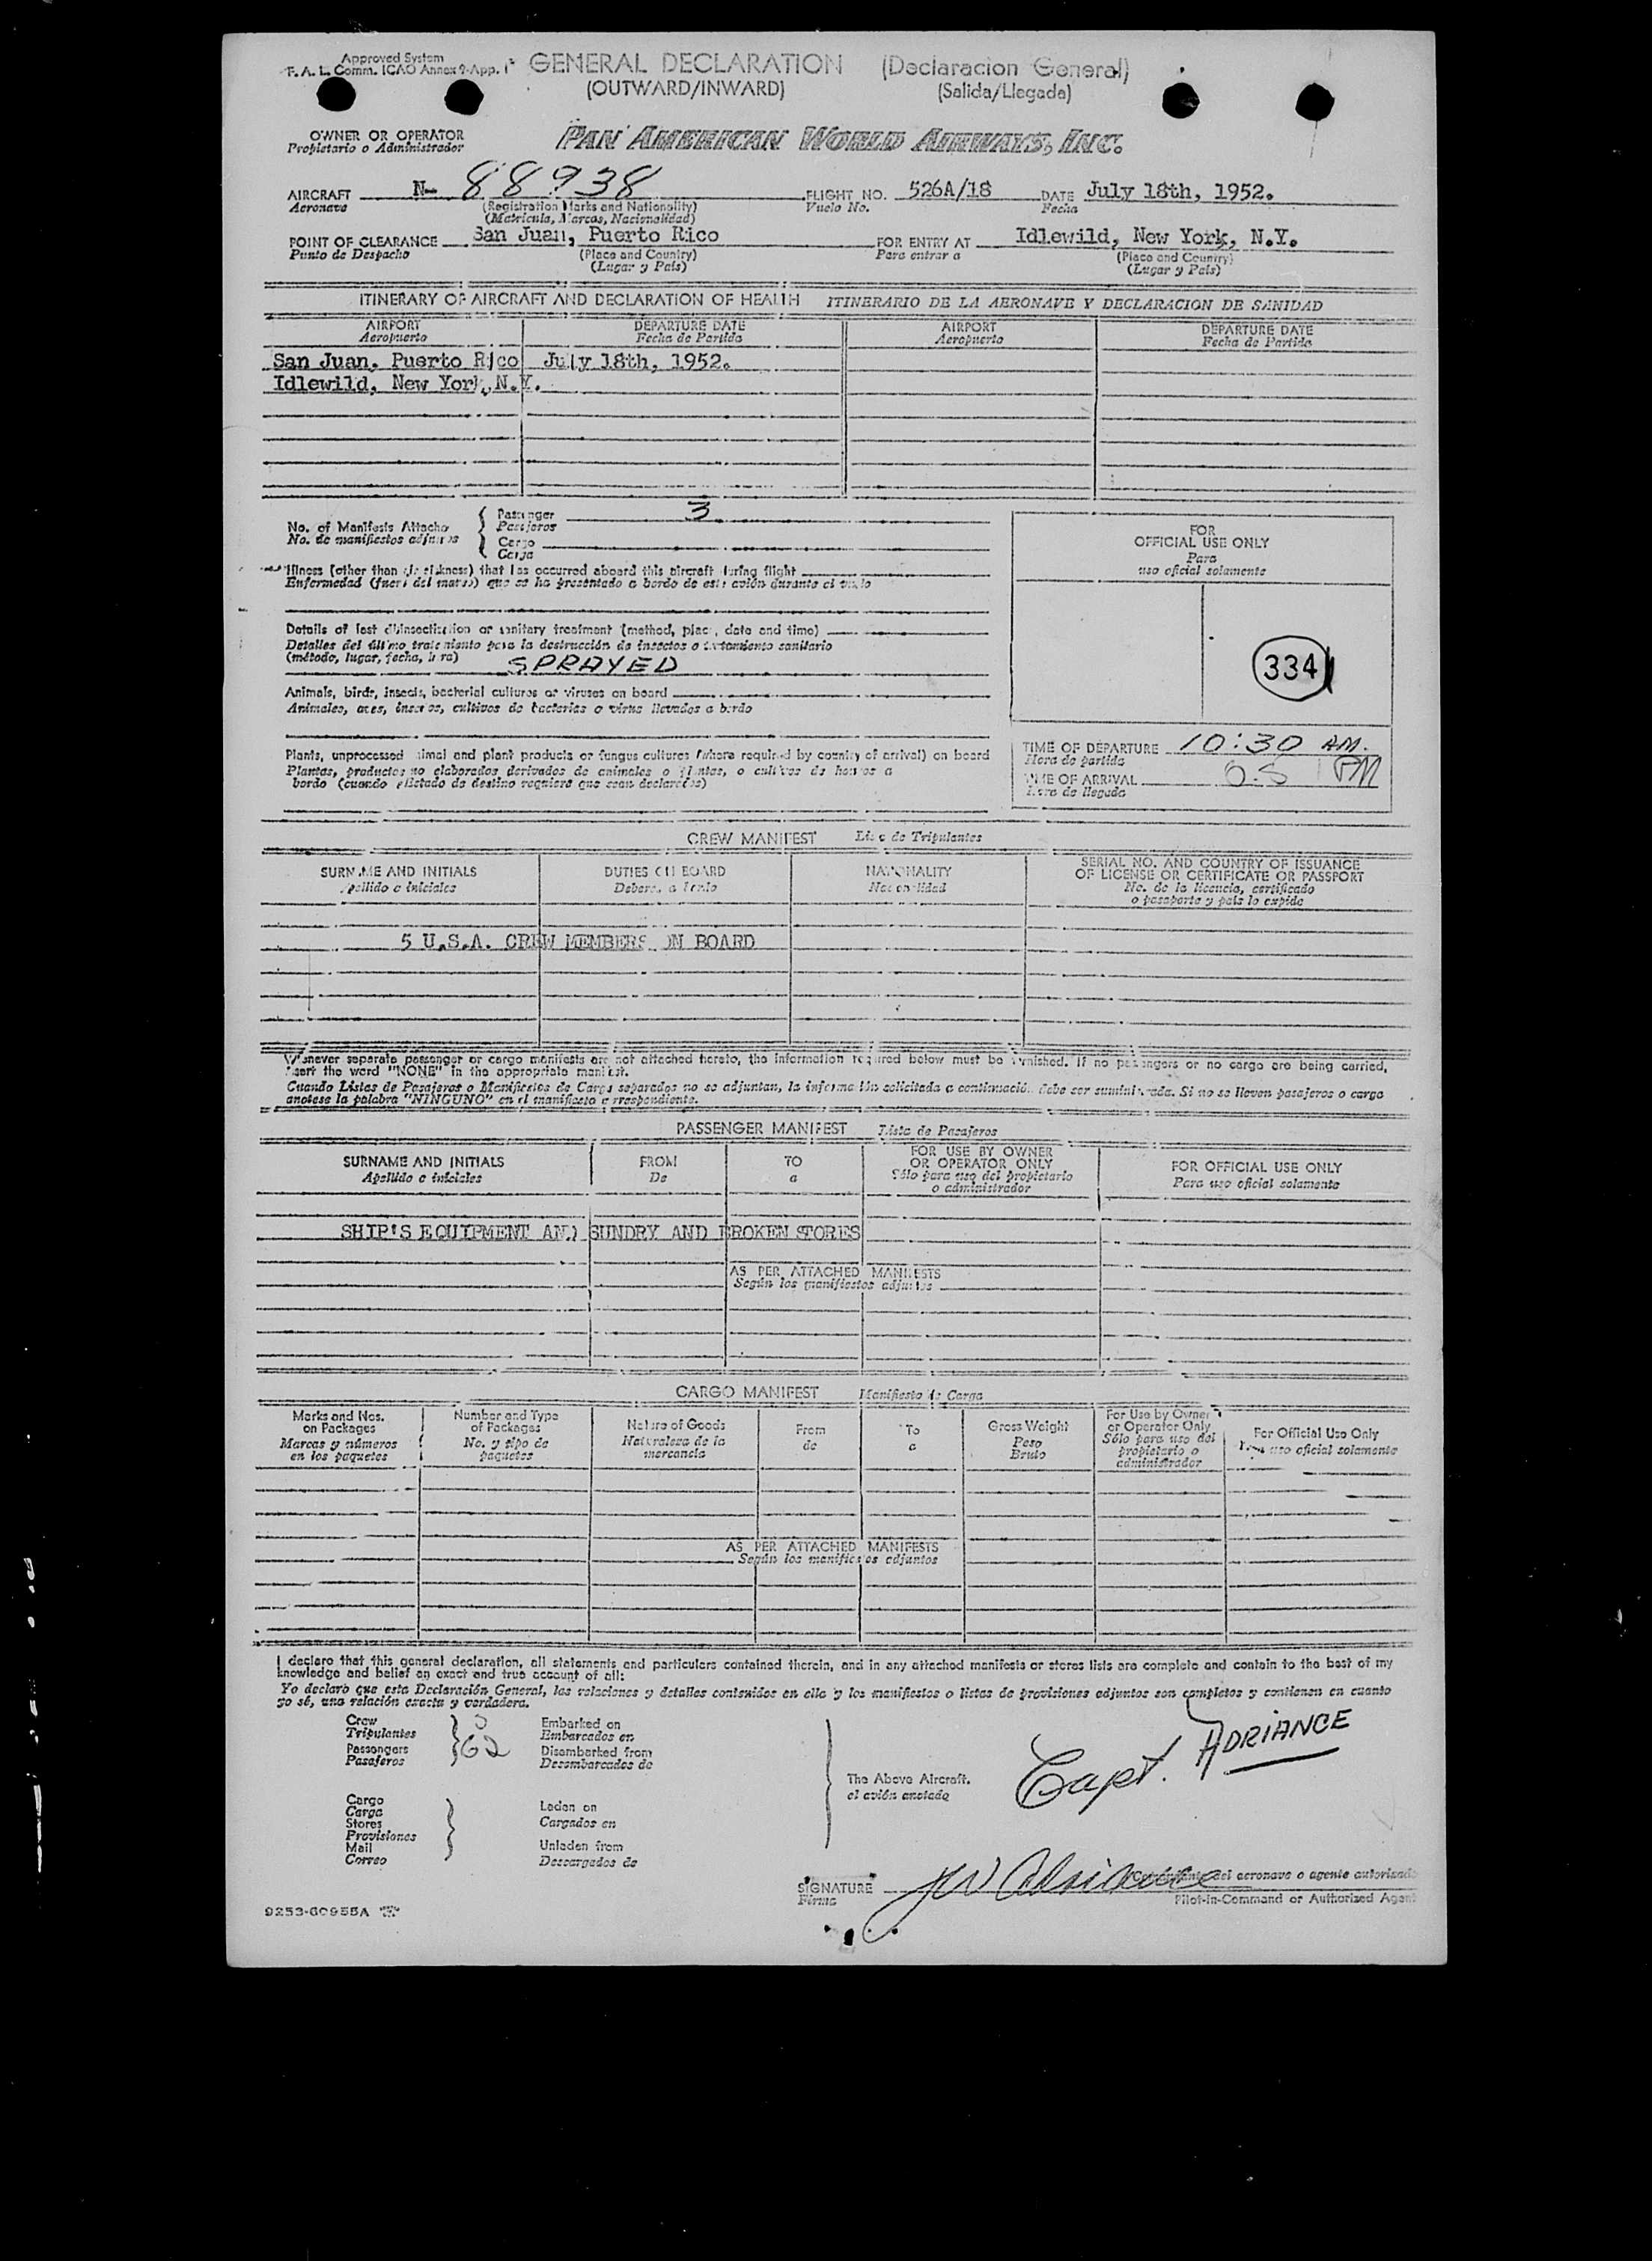 Approved System
F. A. L. Comm. ICAO Annex 9-App. 1
GENERAL DECLARATION (Declaracion General)
(OUTWARD/INWARD) (Salida/Llegada)
OWNER OR OPERATOR
Propietario o Administrador
PAN AMERICAN WORLD AIRWAYS, INC.
AIRCRAFT N- 88938 FLIGHT NO. 526A/18 DATE July 18th, 1952.
Aeronave (Registration Marks and Nationality) Vuelo No. Fecha
(Matricula, Marcas, Nacionalidad)
POINT OF CLEARANCE San Juan, Puerto Rico FOR ENTRY AT Idlewild, New York, N.Y.
Punto de Despacho (Place and Country) Para entrar a (Place and Country)
(Lugar y País) (Lugar y País)
ITINERARY OF AIRCRAFT AND DECLARATION OF HEALTH ITINERARIO DE LA AERONAVE Y DECLARACION DE SANIDAD
AIRPORT DEPARTURE DATE AIRPORT DEPARTURE DATE
Aeropuerto Fecha de Partida Aeropuerto Fecha de Partida
San Juan, Puerto Rico July 18th, 1952.
Idlewild, New York, N.Y.
No. of Manifests Attache
No. de manifiestos adjuntos
Passenger 3
Pasajeros
Cargo
Carga
Illness (other than air sickness) that has occurred aboard this aircraft during flight
Enfermedad (fuera del mareo) que se ha presentado a bordo de este avión durante el vuelo
Details of last disinsectization or sanitary treatment (method, place, date and time)
Detalles del último tratamiento para la destrucción de insectos o tratamiento sanitario
(método, lugar, fecha, hora) SPRAYED
Animals, birds, insects, bacterial cultures or viruses on board
Animales, aves, insectos, cultivos de bacterias o virus llevados a bordo
Plants, unprocessed animal and plant products or fungus cultures (where required by country of arrival) on board
Plantas, productos no elaborados derivados de animales o plantas, o cultivos de hongos a
bordo (cuando el Estado de destino requiera que sean declarados)
FOR
OFFICIAL USE ONLY
Para
uso oficial solamente
334
TIME OF DEPARTURE 10:30 AM.
Hora de partida
TIME OF ARRIVAL PM
Hora de llegada
CREW MANIFEST Lista de Tripulantes
SURNAME AND INITIALS DUTIES ON BOARD NATIONALITY SERIAL NO. AND COUNTRY OF ISSUANCE
OF LICENSE OR CERTIFICATE OR PASSPORT
Apellido e iniciales Deberes a bordo Nacionalidad No. de la licencia, certificado
o pasaporte y país lo expide
5 U.S.A. CREW MEMBERS ON BOARD
Whenever separate passenger or cargo manifests are not attached hereto, the information required below must be furnished. If no passengers or no cargo are being carried,
insert the word "NONE" in the appropriate manifest.
Cuando Listas de Pasajeros o Manifiestos de Carga separados no se adjuntan, la información solicitada a continuación debe ser suministrada. Si no se llevan pasajeros o carga
anotese la palabra "NINGUNO" en el manifiesto correspondiente.
PASSENGER MANIFEST Lista de Pasajeros
SURNAME AND INITIALS FROM TO FOR USE BY OWNER
OR OPERATOR ONLY FOR OFFICIAL USE ONLY
Apellido e iniciales De a Sólo para uso del propietario
o administrador Para uso oficial solamente
SHIP'S EQUIPMENT AND SUNDRY AND BROKEN STORES
AS PER ATTACHED MANIFESTS
Según los manifiestos adjuntos
CARGO MANIFEST Manifiesto de Carga
Marks and Nos.
on Packages
Marcas y números
en los paquetes
Number and Type
of Packages
No. y tipo de
paquetes
Nature of Goods
Naturaleza de la
mercancia
From
de
To
a
Gross Weight
Peso
Bruto
For Use by Owner
or Operator Only
Sólo para uso del
propietario o
administrador
For Official Use Only
Para uso oficial solamente
AS PER ATTACHED MANIFESTS
Según los manifiestos adjuntos
I declare that this general declaration, all statements and particulars contained therein, and in any attached manifests or stores lists are complete and contain to the best of my
knowledge and belief an exact and true account of all:
Yo declaro que esta Declaración General, las relaciones y detalles contenidos en ella y los manifiestos o listas de provisiones adjuntos son completos y contienen en cuanto
yo sé, una relación exacta y verdadera.
Crew 5 Embarked on
Tripulantes Embarcados en
Passengers 62 Disembarked from
Pasajeros Desembarcados de
The Above Aircraft.
el avión anotado
Capt. ADRIANCE
Cargo
Carga Laden on
Stores Cargados en
Provisiones
Mail Unladen from
Correo Descargados de
SIGNATURE JW Adriance del aeronave o agente autorizado
Firma Pilot-in-Command or Authorized Agent
9253-60955A